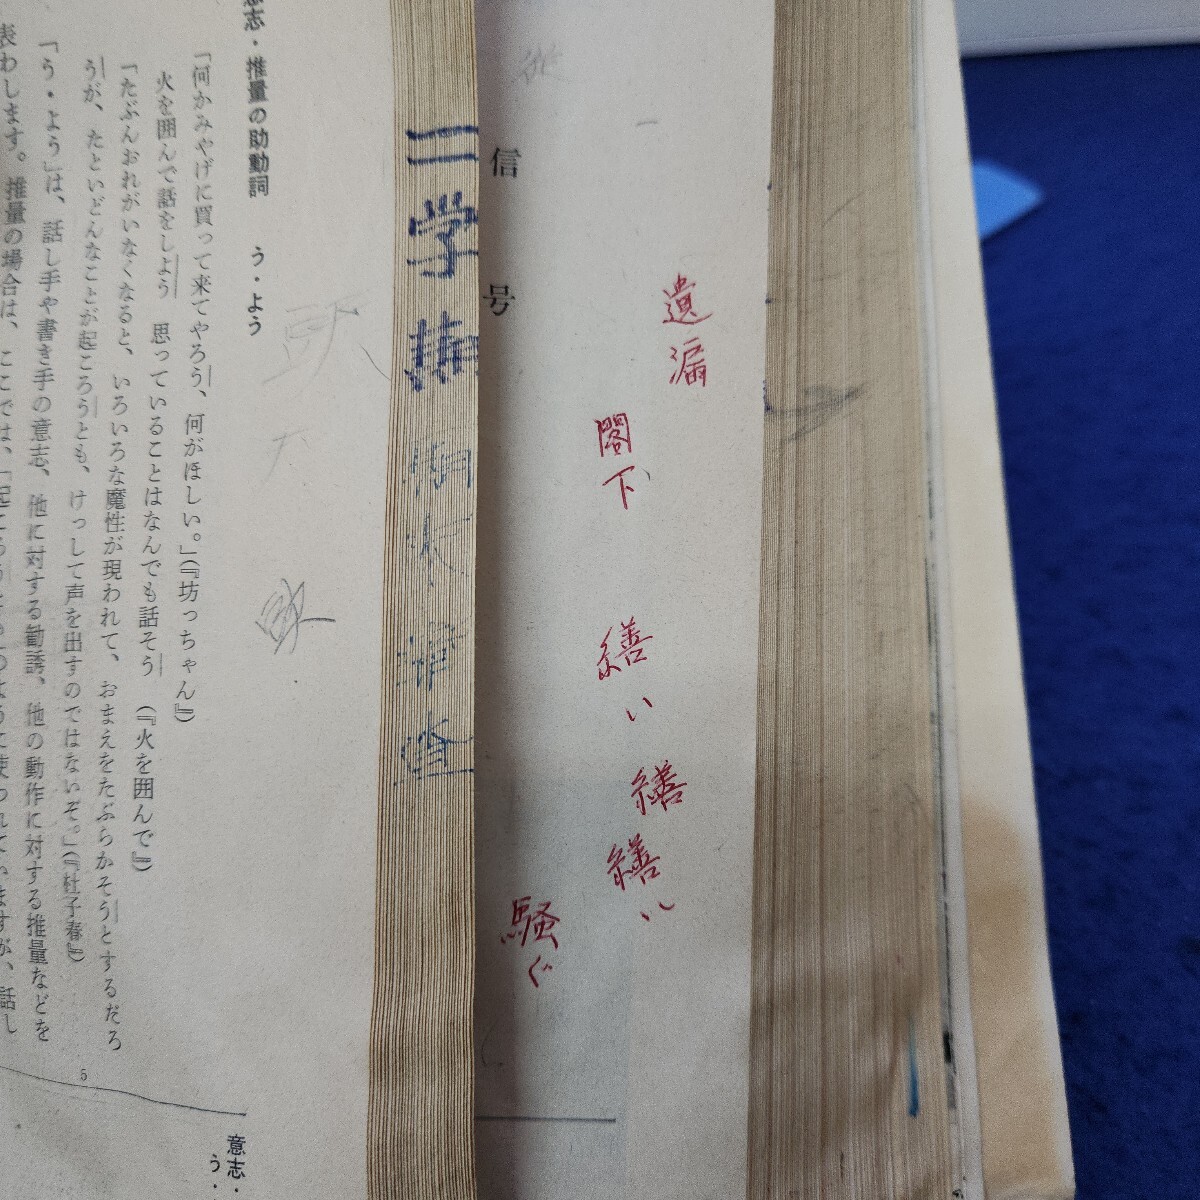 信号
遺漏
閣下
繕い 繕
繕い
騒ぐ
二学期
頭
意志・推量の助動詞 う・よう
「何かみやげに買って来てやろう、何がほしい。」(『坊っちゃん』)
火を囲んで話をしよう 思っていることはなんでも話そう (『火を囲んで』)
「たぶんおれがいなくなると、いろいろな魔性が現われて、おまえをたぶらかそうとするだろ
うが、たといどんなことが起ころうとも、けっして声を出すのではないぞ。」(『杜子春』)
「う・よう」は、話し手や書き手の意志、他に対する勧誘、他の動作に対する推量などを
表わします。推量の場合は、ここでは、「起ころう
ますが、話し
5
意志・
う・